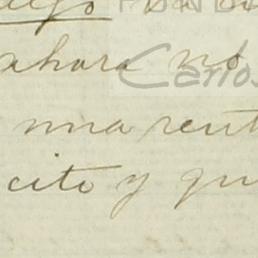 ahora no
Carlos
una rent
cito y qu